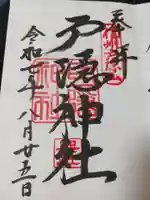 奉拝
戸隠神社
令和二年八月廿五日